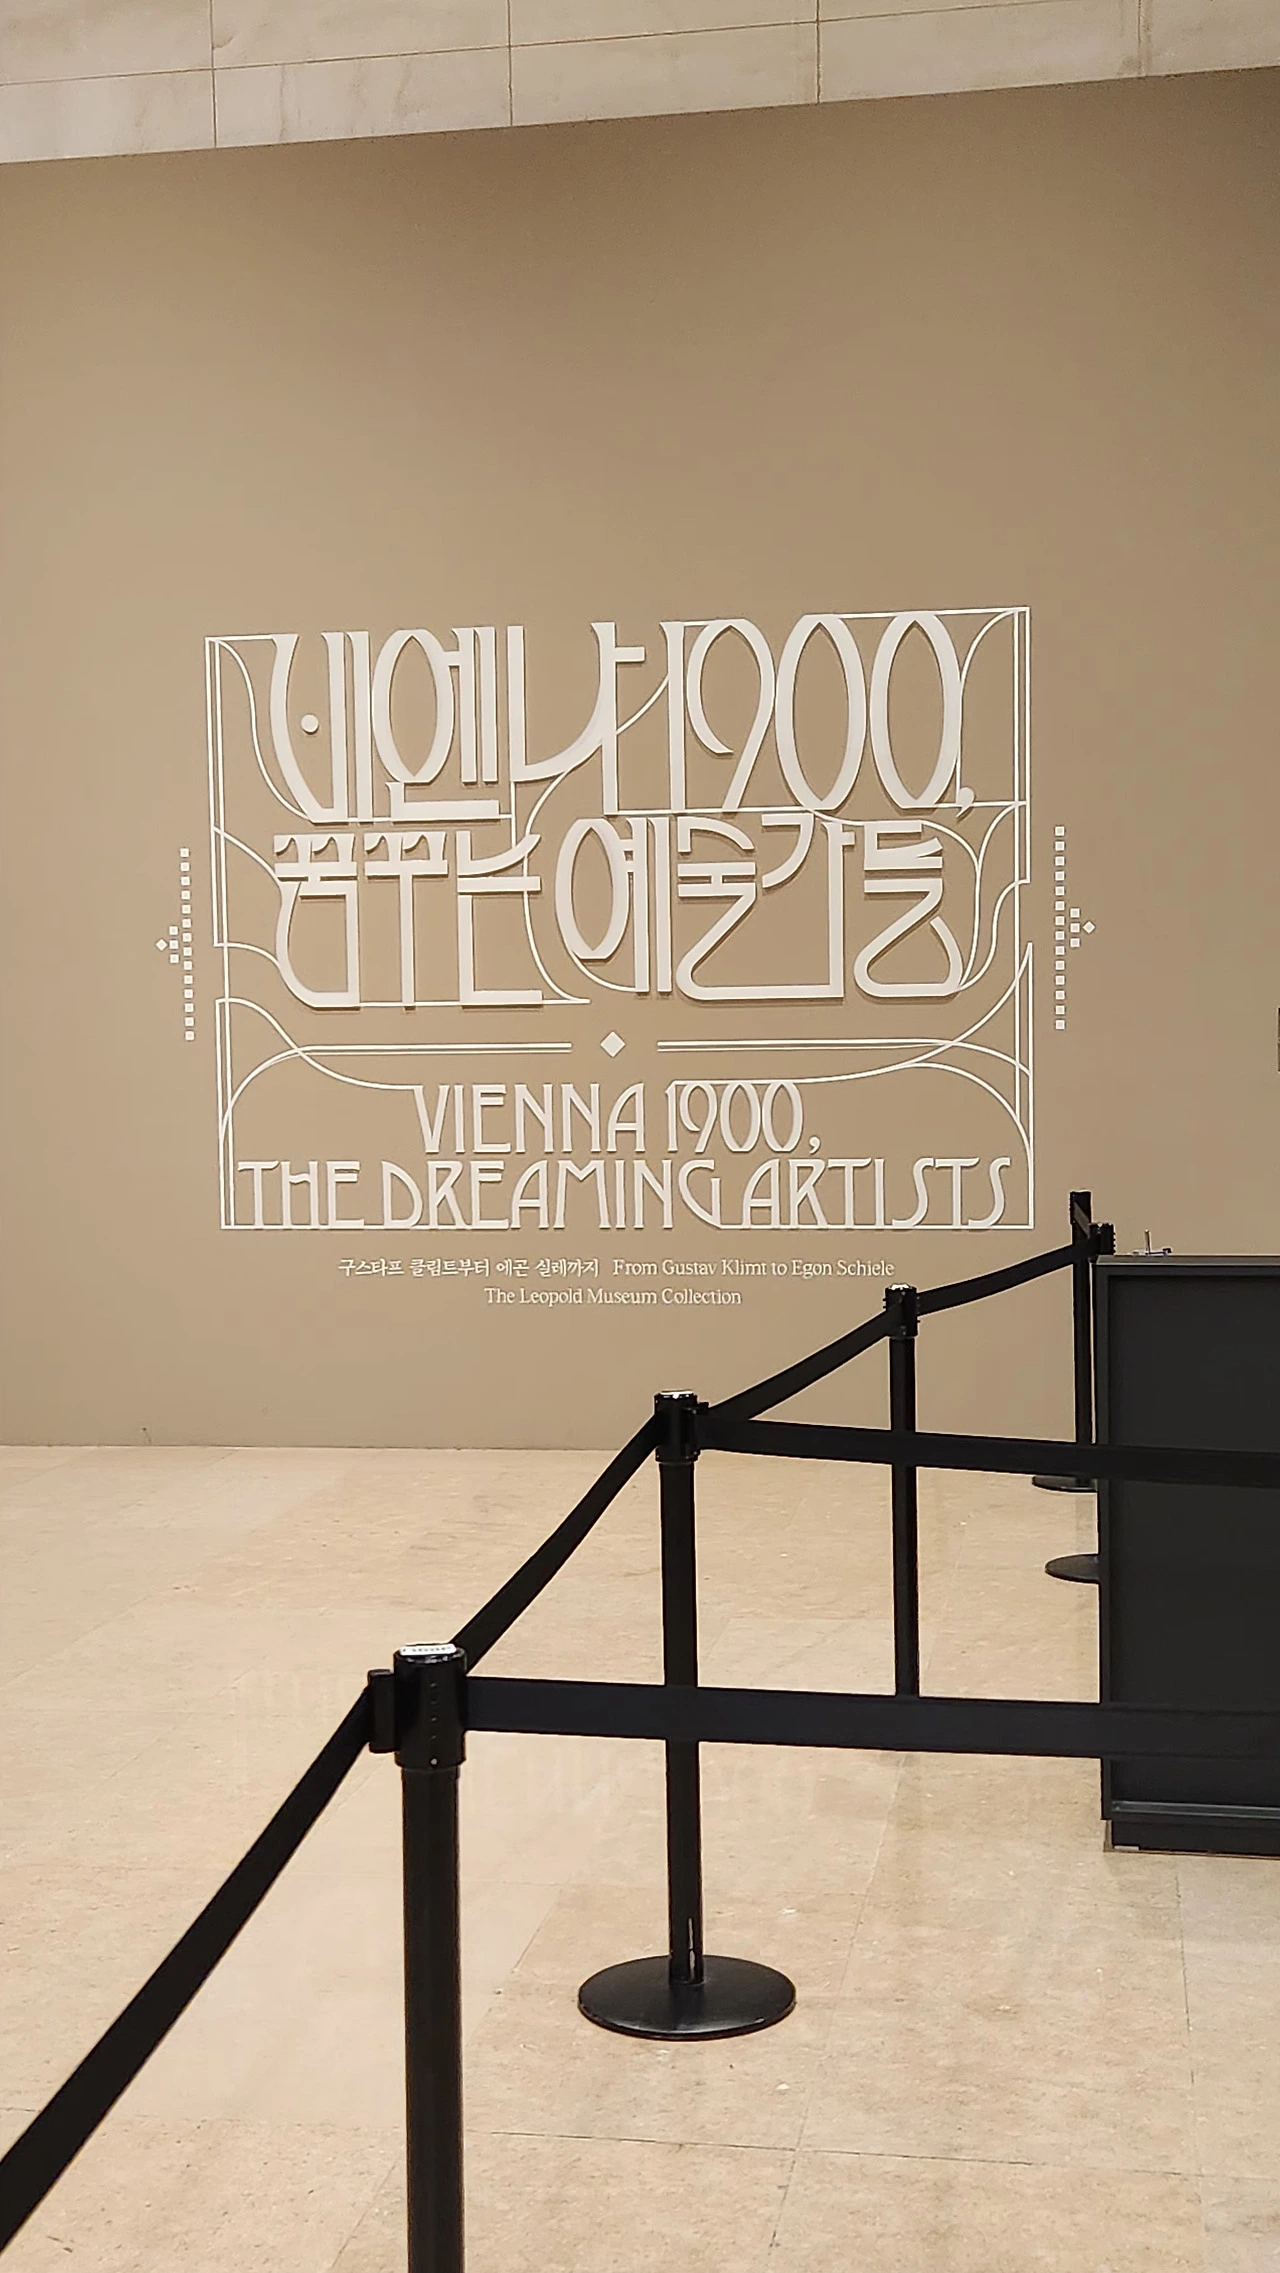 비엔나 1900,
꿈꾸는 예술가들
VIENNA 1900,
THE DREAMING ARTISTS
구스타프 클림트부터 에곤 실레까지 From Gustav Klimt to Egon Schiele
The Leopold Museum Collection